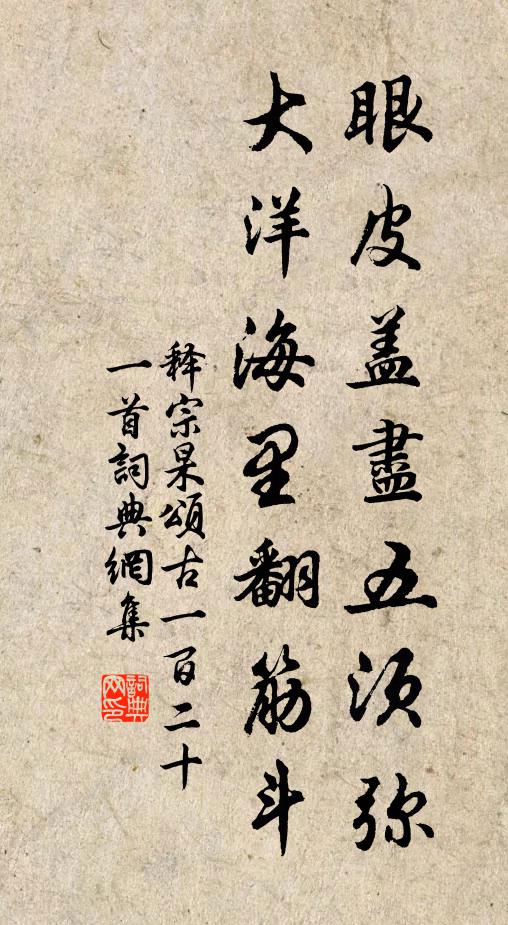 眼皮盖盡五须弥
大洋海里翻筋斗
释宗杲頌古一百二十
一首詞典網集
詞典
网印